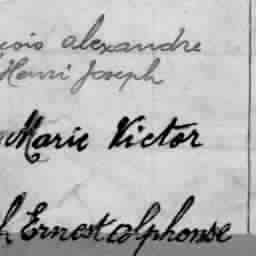 çois alexandre
Henri Joseph
Marie Victor
h Ernest alphonse